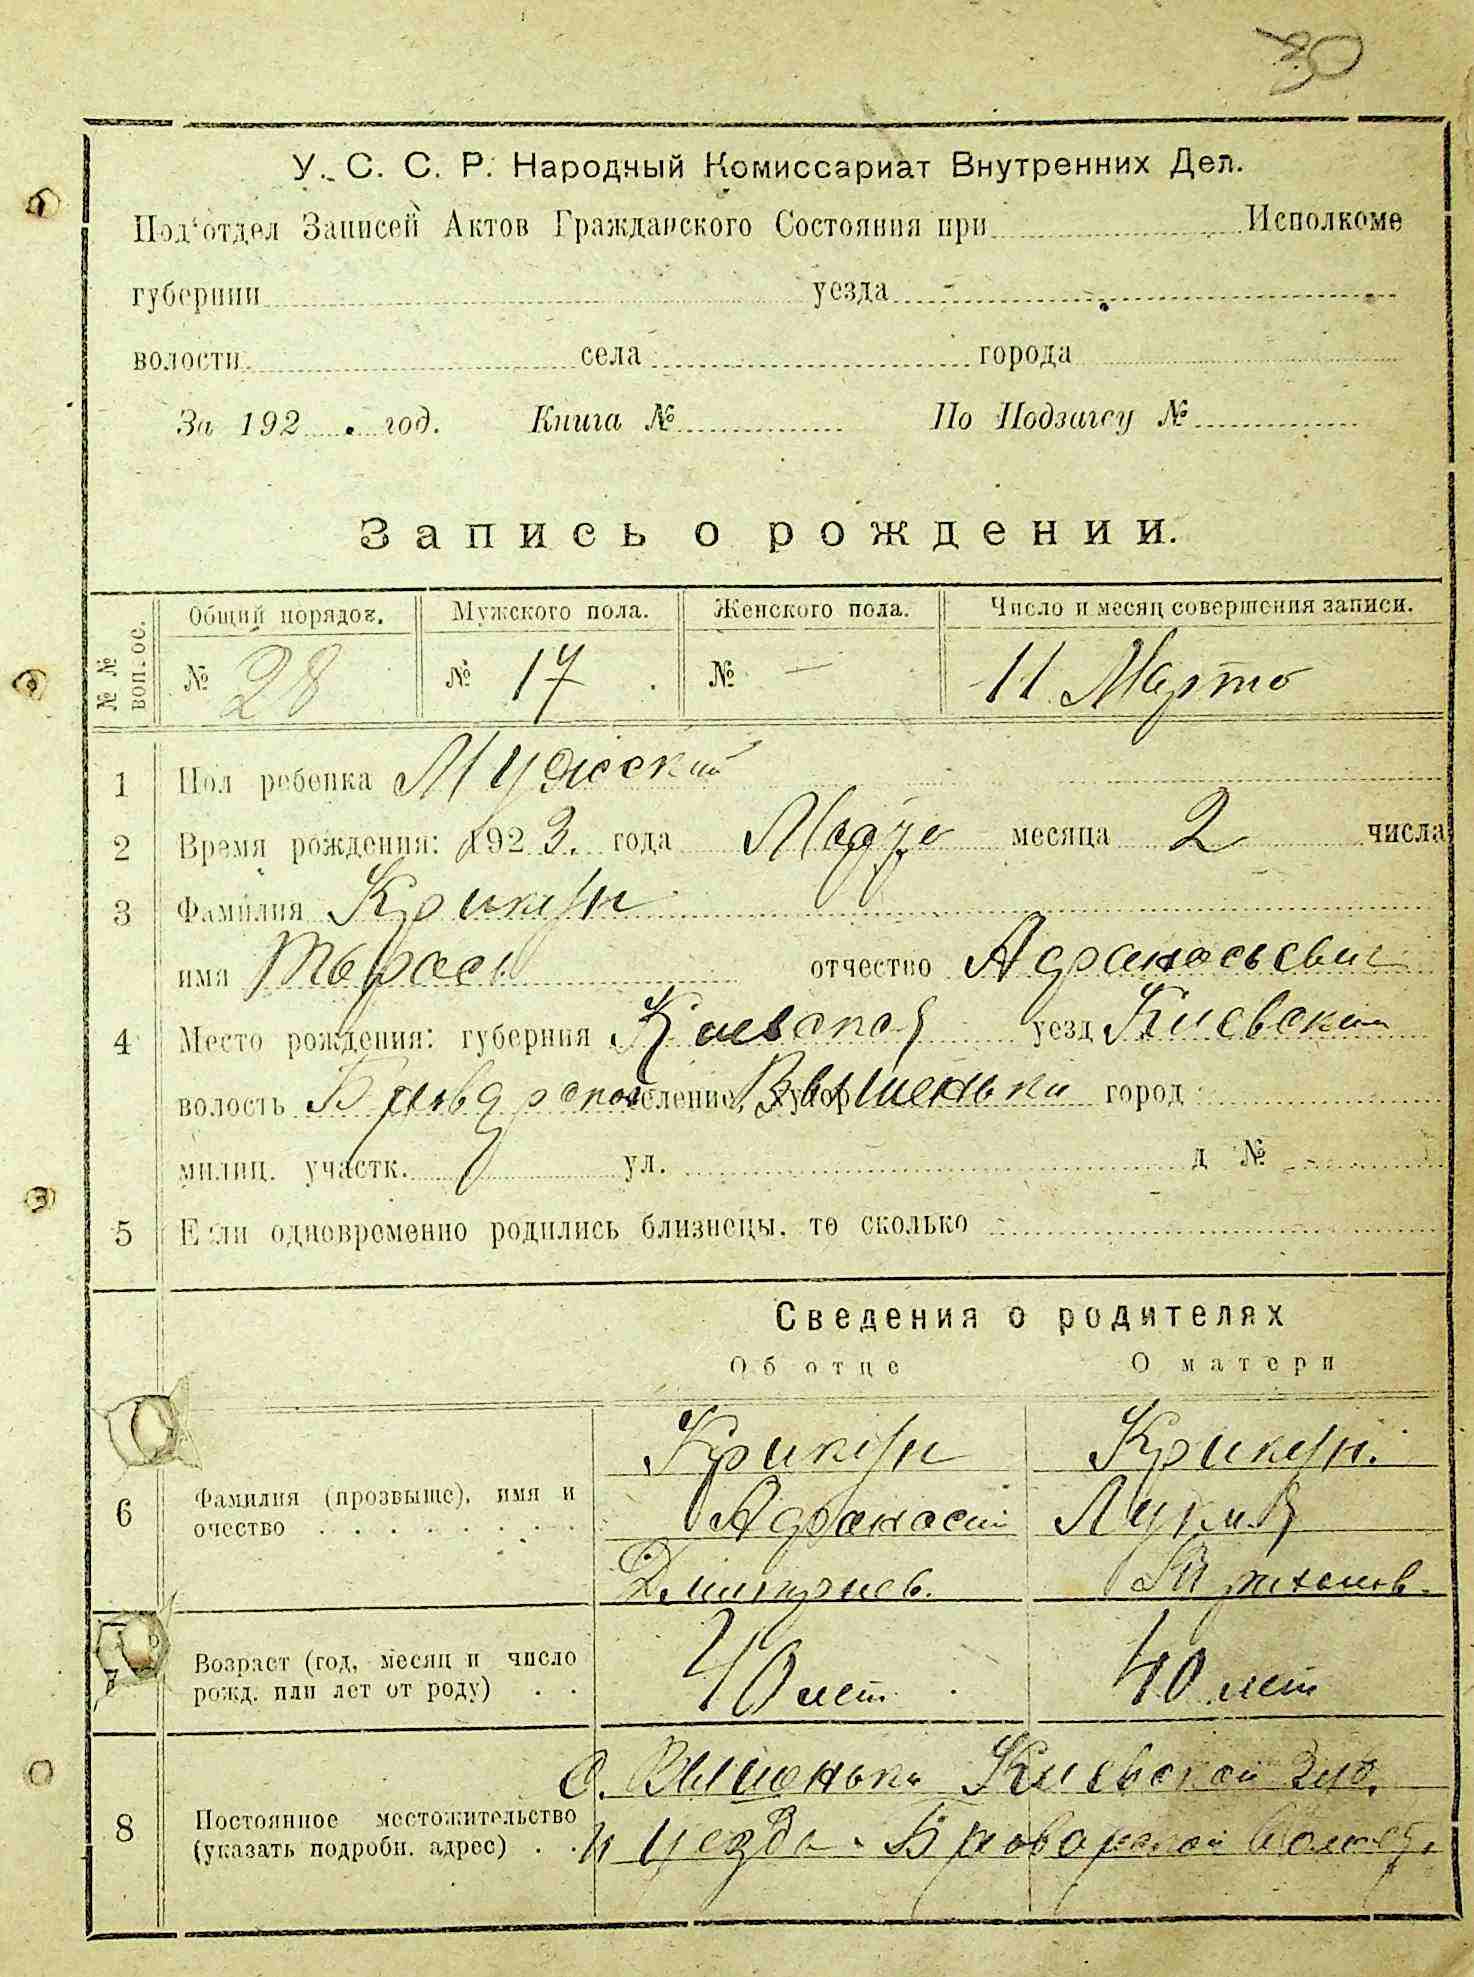 30
У. С. С. Р. Народный Комиссариат Внутренних Дел.
Под'отдел Записей Актов Гражданского Состояния при Исполкоме
губернии уезда
волости села города
За 192 год. Книга № По Подзагсу №
Запись о рождении.
№ № вопрос. Общий порядок. Мужского пола. Женского пола. Число и месяц совершения записи.
№ 28 № 17 № — 11 Марта
1 Пол ребенка Мужский
2 Время рождения: 1923. года месяца 2 числа
3 Фамилия Крикун
имя Тарас отчество Афанасьевич
4 Место рождения: губерния Киевская уезд Киевский
волость Броварская селение, хутор Вышеньки город
милиц. участк. ул. д №
5 Если одновременно родились близнецы, то сколько
Сведения о родителях
Об отце О матери
Крикун Крикун.
6 Фамилия (прозвыще), имя и Афанасий
очество
Дмитриев.
7 Возраст (год, месяц и число 40 лет 40 лет
рожд. или лет от роду)
с. Вышеньки Киевской губ.
8 Постоянное местожительство
(указать подробн. адрес) и уезда Броварской Волости